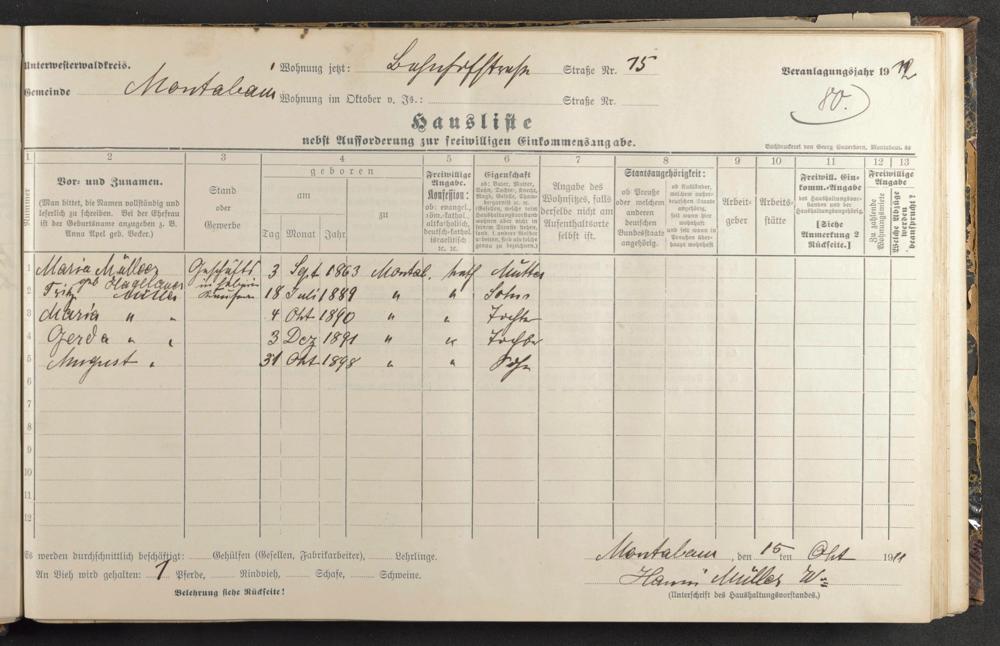 Unterwesterwaldkreis. Wohnung jetzt: Bahnhofstraße Straße Nr. 15 Veranlagungsjahr 1912
Gemeinde Montabaur Wohnung im Oktober v. Js.: Straße Nr. 80.
Hausliste
nebst Aufforderung zur freiwilligen Einkommensangabe.
Buchdruckerei von Georg Sauerborn, Montabaur.
1 2 3 4 5 6 7 8 9 10 11 12 13
Nummer
Vor- und Zunamen.
(Man bittet, die Namen vollständig und
leserlich zu schreiben. Bei der Ehefrau
ist der Geburtsname anzugeben z. B.
Anna Apel geb. Becker.)
Stand
oder
Gewerbe
geboren
am
zu
Tag Monat Jahr
Freiwillige
Angabe.
Konfession:
ob: evangel.,
röm.-kathol.,
altkatholisch,
deutsch-kathol.
israelitisch
ec. ec.
Eigenschaft
ob: Vater, Mutter,
Sohn, Tochter, Knecht,
Magd, Geselle,
genau zu bezeichnen.)
Angabe des
Wohnsitzes, falls
derselbe nicht am
Aufenthaltsorte
selbst ist.
Staatsangehörigkeit:
ob Preuße
oder welchem
anderen
deutschen
Bundesstaate
angehörig.
ob Ausländer,
welchem außer-
deutschen Staate
angehörig,
seit wann hier
wohnhaft
und seit wann in
Preußen über-
haupt wohnhaft
Arbeit-
geber
Arbeits-
stätte
Freiwill. Ein-
komm.-Angabe
des Haushaltungsvor-
standes und der
Haushaltungsangehörig.
[Siehe
Anmerkung 2
Rückseite.]
Freiwillige
Angabe
Zu zahlende
Wohnungsmiete
Welche Abzüge
werden
beansprucht?
1 Maria Müller Geschäfts 3 Sept 1863 Montab. kath Mutter
geb
2 Fritz Müller 18 Juli 1889 " " Sohn
3 Maria " " 4 Okt 1890 " " Tochter
4 Gerda " " 3 Dez 1891 " " Tochter
5 August " 31 Okt 1898 " " Sohn
6
7
8
9
10
11
12
Es werden durchschnittlich beschäftigt: Gehülfen (Gesellen, Fabrikarbeiter), Lehrlinge.
An Vieh wird gehalten: 1 Pferde, Rindvieh, Schafe, Schweine.
Belehrung siehe Rückseite!
Montabaur, den 15ten Okt 1911
Müller
(Unterschrift des Haushaltungsvorstandes.)